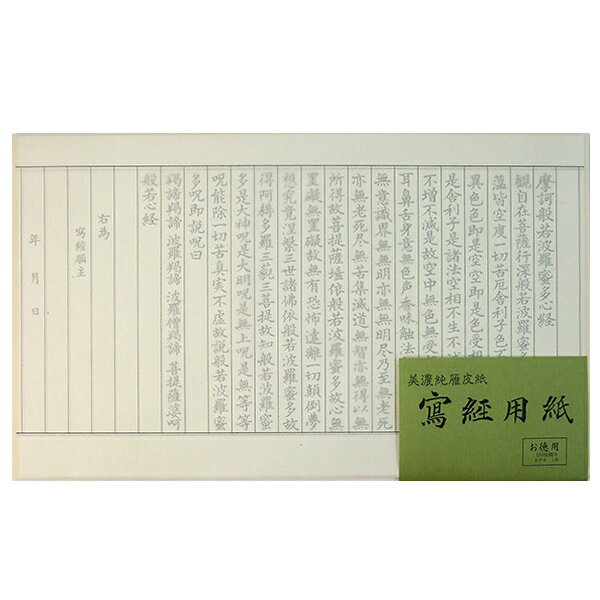 摩訶般若波羅蜜多心経
観自在菩薩行深般若波羅蜜多
蘊皆空度一切苦厄舎利子色不
異色色即是空空即是色受想
是舎利子是諸法空相不生不
不増不減是故空中無色無受
耳鼻舌身意無色声香味触法
無意識界無無明亦無無明尽乃至無老死
亦無老死尽無苦集滅道無智亦無得以無
所得故菩提薩埵依般若波羅蜜多故心無
罣礙無罣礙故無有恐怖遠離一切顛倒夢
想究竟涅槃三世諸佛依般若波羅蜜多故
得阿耨多羅三藐三菩提故知般若波羅蜜
多是大神呪是大明呪是無上呪是無等等
呪能除一切苦真実不虚故説般若波羅蜜
多呪即説呪曰
羯諦羯諦 波羅羯諦 波羅僧羯諦 菩提薩婆呵
般若心経
右為
寫経願主
年 月 日
美濃純雁皮紙
寫経用紙
お徳用